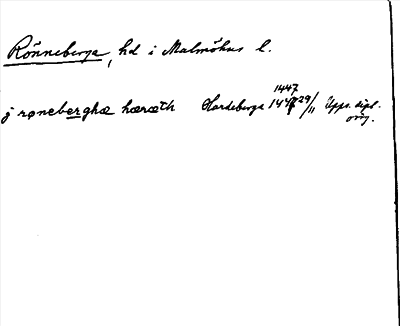 Rönneberga, hd i Malmöhus l.
1447
j røneberghæ hæræth Hardeberga 1447 29/11 Upps. dipl.
orig.